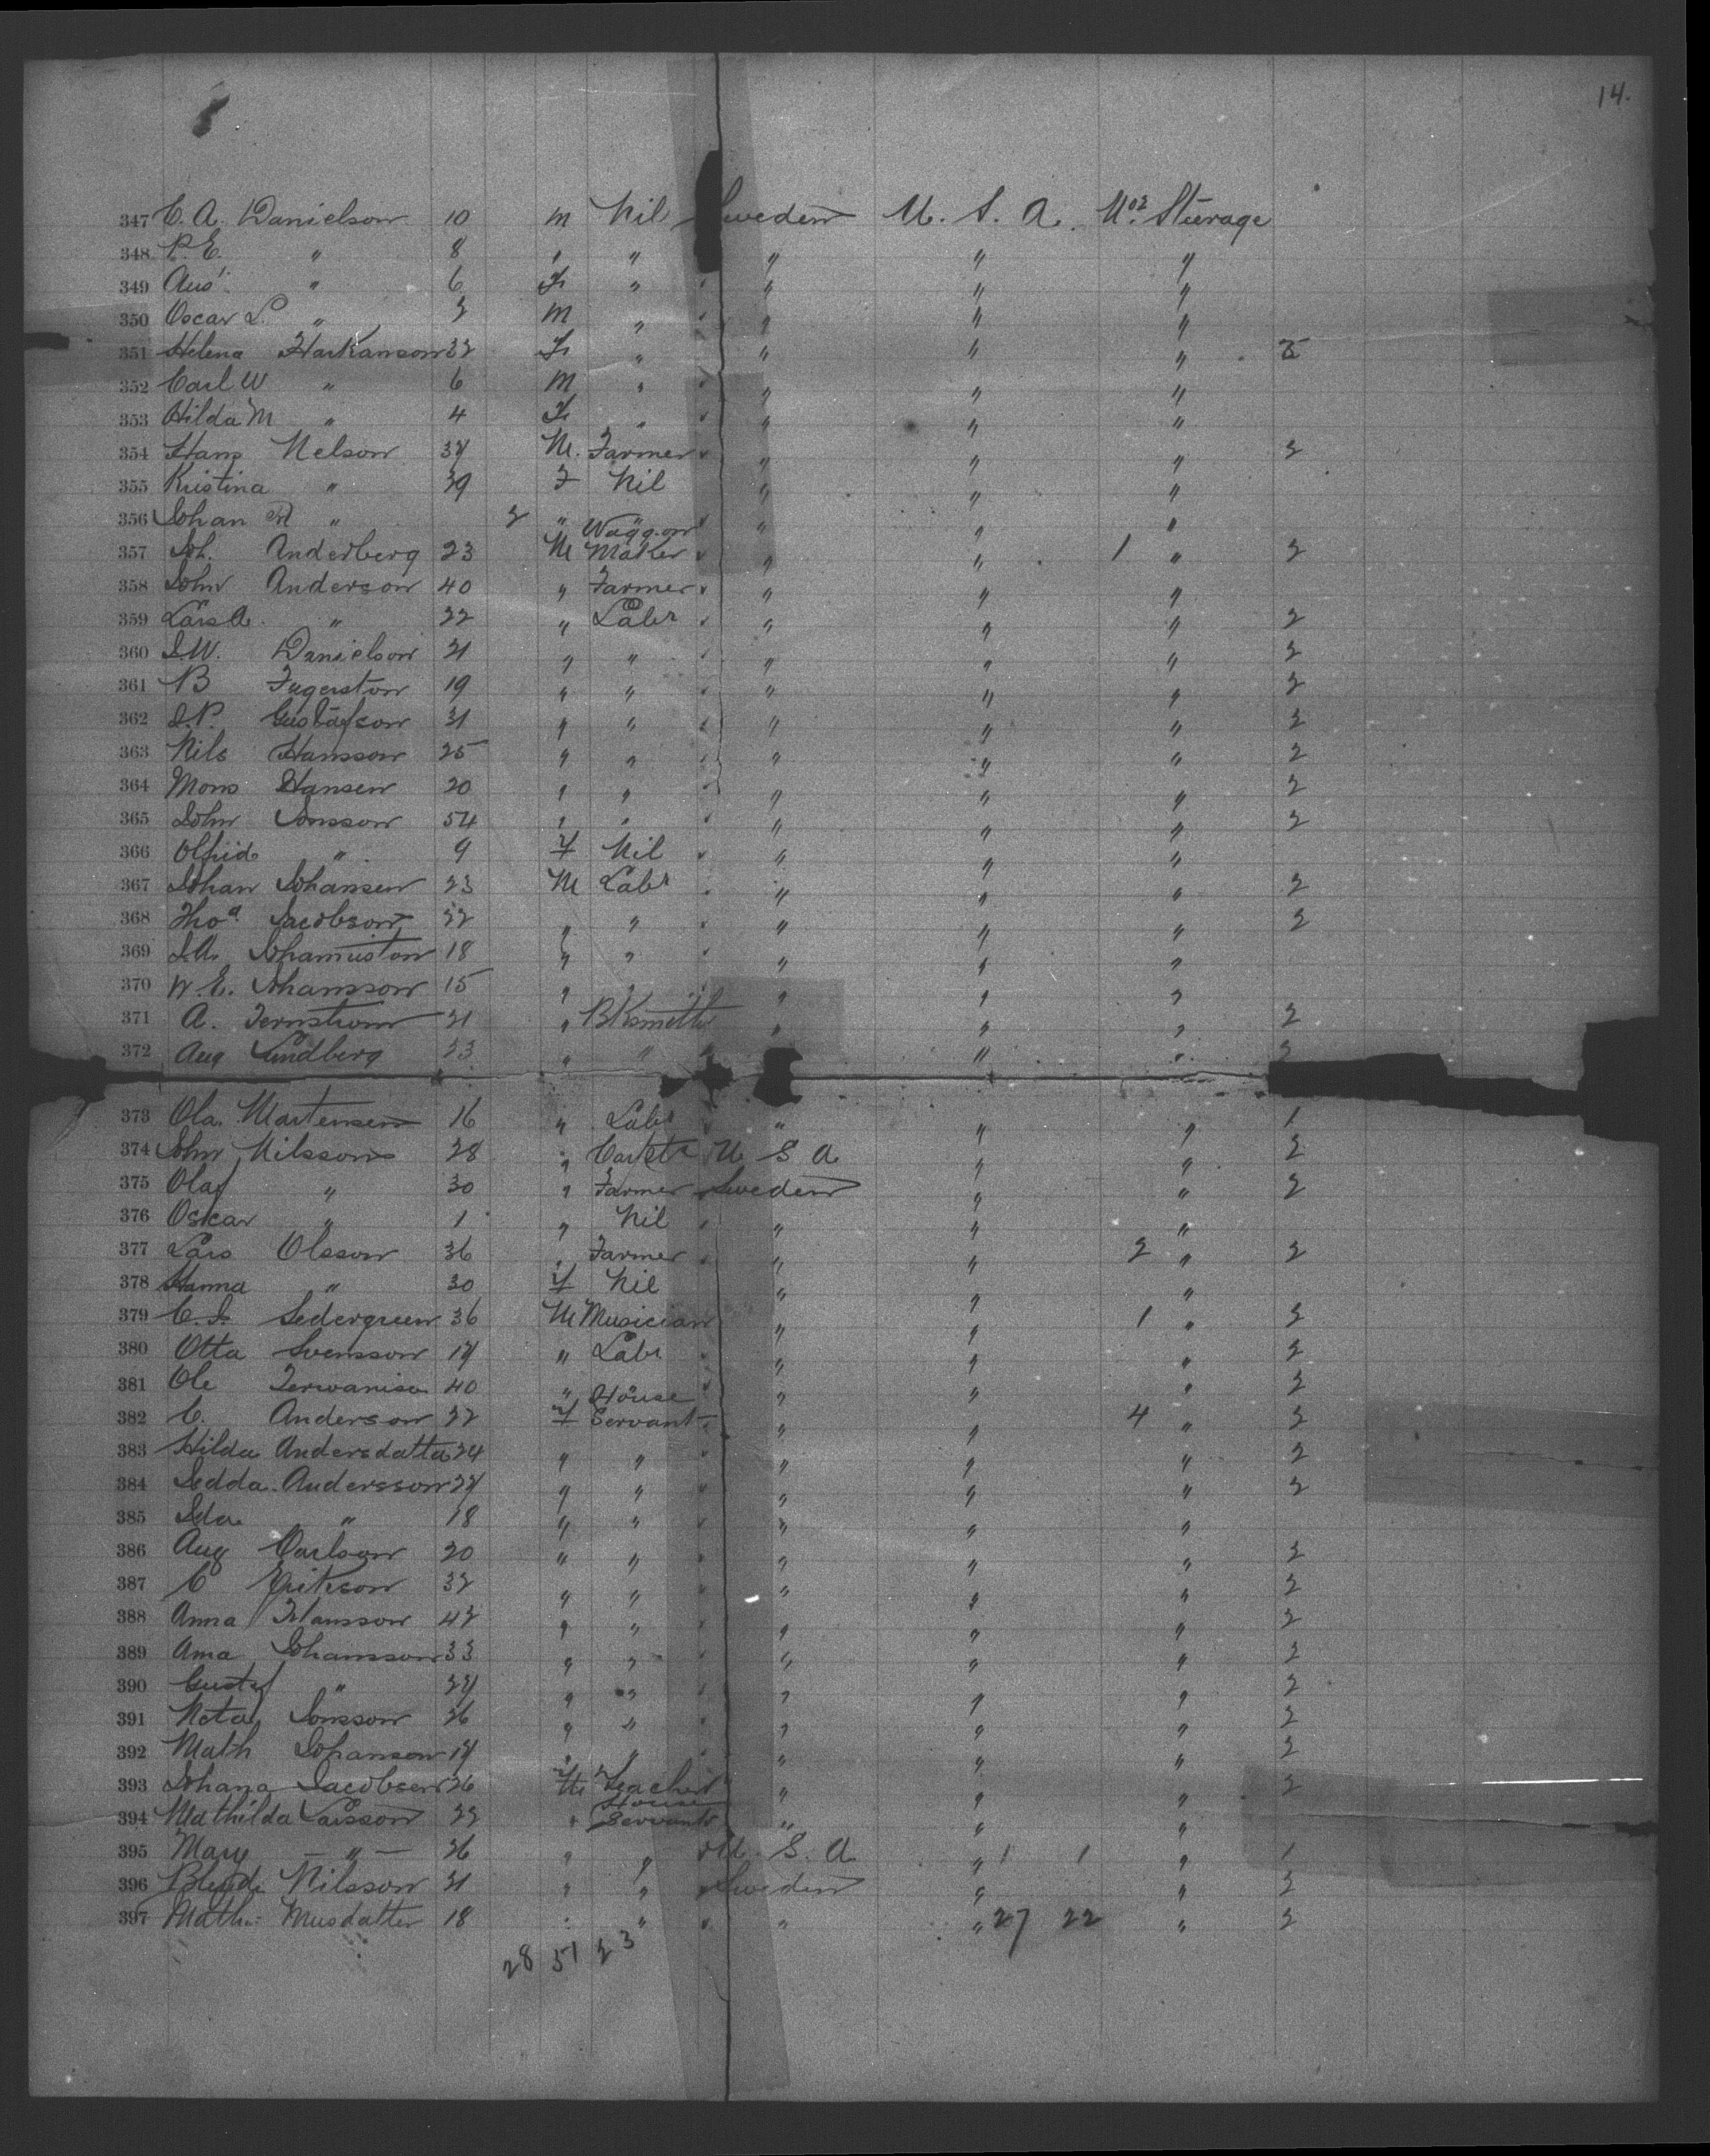 14.
347 C. A. Danielson 10 M Nil Sweden U. S. A. No. 2 Steerage
348 P. E. " 8 " " " " "
349 Aug. " 6 F " " " "
350 Oscar L. " 3 M " " " "
351 Helena Harkanson 32 F " " " "
352 Carl W " 6 M " " " "
353 Hilda M " 4 F " " " "
354 Hans Nelson 34 M. Farmer " " " 2
355 Kristina " 39 F Nil " " "
356 Johan " 2 " " " " "
357 Joh. Anderberg 23 M Waggon Maker " " 1 " 2
358 John Anderson 40 " Farmer " " "
359 Lars A. " 22 " Labr " " " 2
360 J. W. Danielson 21 " " " " " 2
361 B 19 " " " " " 2
362 J. P. Gustafson 31 " " " " " 2
363 Nils Hansson 25 " " " " " 2
364 Mons Hansen 20 " " " " " 2
365 John Jonsson 54 " " " " " 2
366 " 9 F Nil " " "
367 Johan Johansen 23 M Labr " " " 2
368 Thos. Jacobson 22 " " " " " 2
369 J. A. 18 " " " " "
370 W. E. Johansson 15 " " " " "
371 A. Ternstrom 21 " Bksmith " " " 2
372 Aug Lindberg 23 " " " " " 2
373 Ola Martensen 16 " Labr " " " 1
374 John Nilsson 28 " Carptr U S A " " 2
375 Olaf " 30 " Farmer Sweden " " 2
376 Oskar " 1 " Nil " " "
377 Lars Olsson 36 " Farmer " " 2 " 2
378 Hanna " 30 F Nil " " "
379 C. J. Sedergreen 36 M Musician " " 1 " 2
380 Otta Svensson 17 " Labr " " " 2
381 Ole 40 " " " " 2
382 C. Anderson 22 F House Servant " " 4 " 2
383 Hilda Andersdatta 24 " " " " " 2
384 Sedda Andersson 24 " " " " " 2
385 Ida " 18 " " " " "
386 Aug Carlson 20 " " " " " 2
387 C Erikson 32 " " " " " 2
388 Anna Hansson 42 " " " " " 2
389 Ama Johansson 33 " " " " " 2
390 Gustaf " 24 " " " " " 2
391 Neta Jonsson 26 " " " " " 2
392 Math Johanson 17 " " " " " 2
393 Johana Jacobsen 26 Teacher " " " 2
394 Mathilda Larsson 22 " House Servant " " "
395 Mary — " — 26 " " U. S. A " 1 1 " 1
396 Nilsson 21 " " Sweden " " 2
397 Math. Musdatter 18 " " " " 27 22 " 2
28 51 23